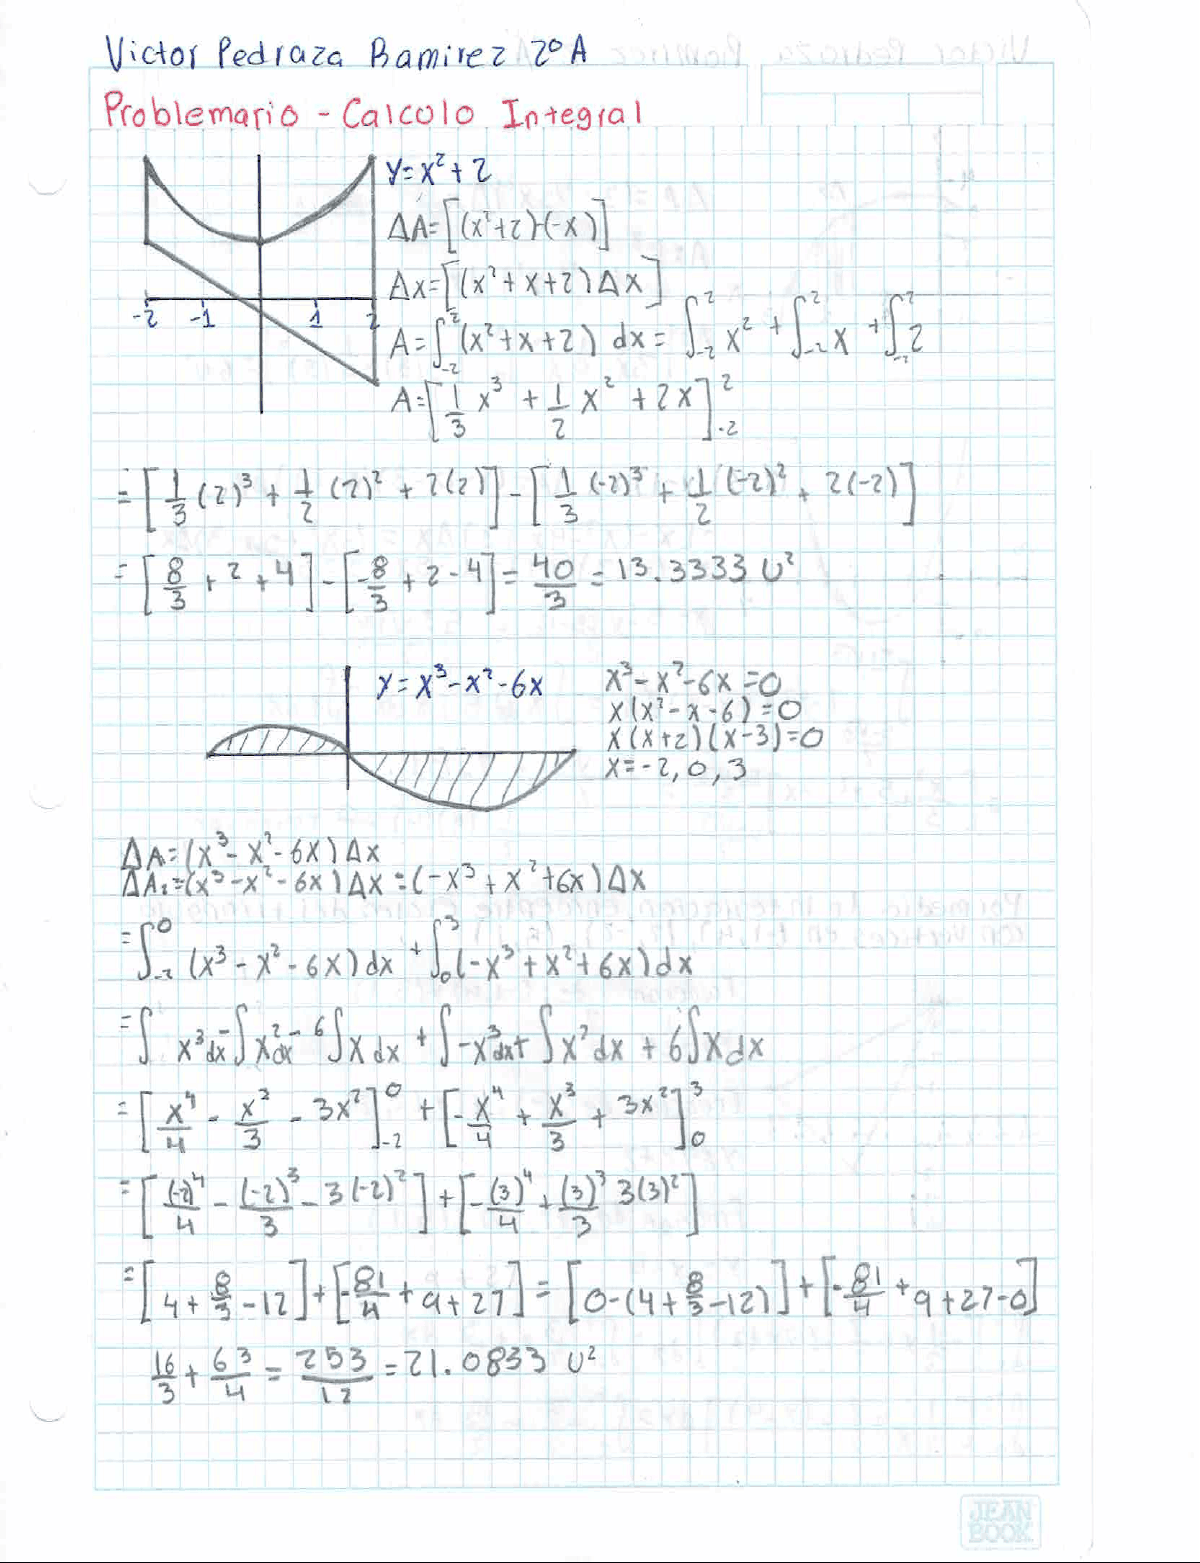 Victor Pedraza Ramirez 2°A
Problemario - Calculo Integral
y=x²+2
ΔA=[(x²+2)-(-x)]
Ax=[(x²+x+2)Δx]
-2 -1 1 2
A=∫₋₂²(x²+x+2) dx = ∫₋₂² x² + ∫₋₂² x + ∫₋₂² 2
A=[1/3 x³ + 1/2 x² + 2x]₋₂²
=[1/3 (2)³ + 1/2 (2)² + 2(2)] - [1/3 (-2)³ + 1/2 (-2)² + 2(-2)]
=[8/3 + 2 + 4] - [-8/3 + 2 - 4] = 40/3 = 13.3333 U²
y=x³-x²-6x
x³-x²-6x=0
x(x²-x-6)=0
x(x+2)(x-3)=0
x=-2,0,3
ΔA=(x³-x²-6x)Δx
ΔA₂=(x³-x²-6x)Δx=(-x³+x²+6x)Δx
=∫₋₂⁰ (x³-x²-6x)dx + ∫₀³(-x³+x²+6x)dx
=∫ x³dx - ∫x²dx - 6∫x dx + ∫-x³dx + ∫x²dx + 6∫x dx
=[x⁴/4 - x³/3 - 3x²]₋₂⁰ + [-x⁴/4 + x³/3 + 3x²]₀³
=[(-2)⁴/4 - (-2)³/3 - 3(-2)²] + [-(3)⁴/4 + (3)³/3 3(3)²]
=[4+8/3-12]+[-81/4+9+27]=[0-(4+8/3-12)]+[-81/4+9+27-0]
16/3 + 63/4 = 253/12 = 21.0833 U²
JEAN
BOOK